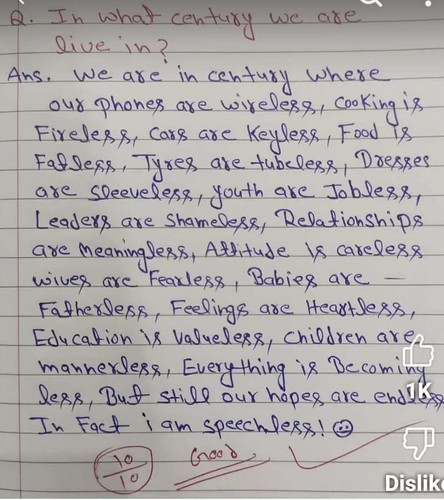 Q. In what century we are
live in?
Ans. we are in century where
our phones are wireless, cooking is
Fireless, Cars are Keyless, Food is
Fatless, Tyres are tubeless, Dresses
are sleeveless, youth are Jobless,
Leaders are shameless, Relationships
are meaningless, Attitude is careless
wives are Fearless, Babies are –
Fatherless, Feelings are Heartless,
Education is valueless, children are
mannerless, Everything is Becoming
less, But still our hopes are endless
In Fact i am speechless!
10/10 Good
1K
Dislik